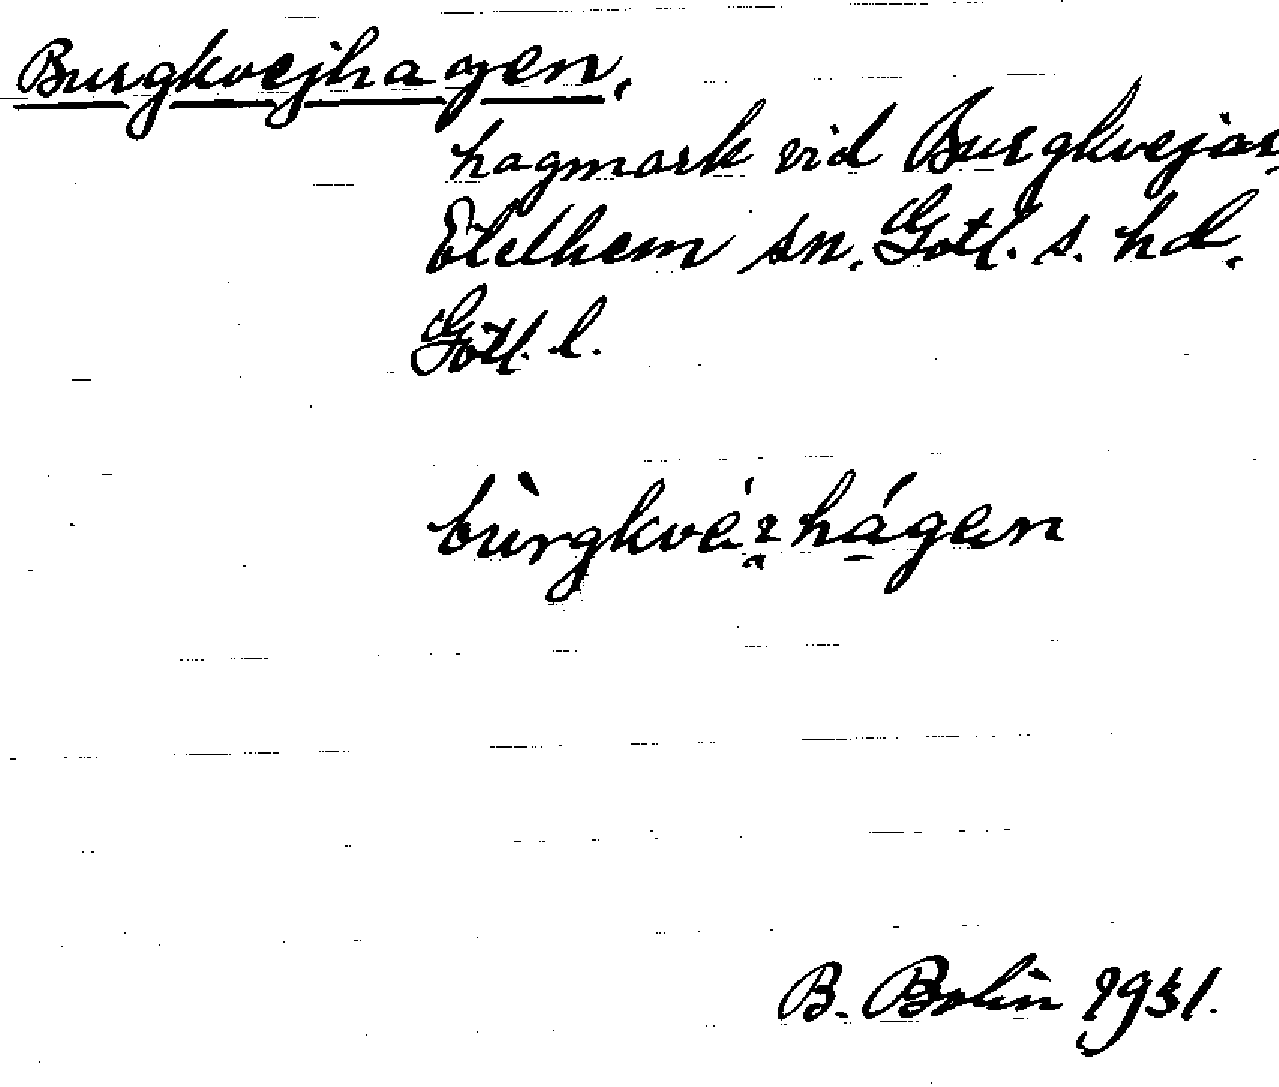 Burgkvejhagen.
hagmark vid Burgkvejar,
Etelhem sn. Gotl. s. hd.
Gotl. l.
bùrgkvé̱ɪhágen
B. Bolin 1931.